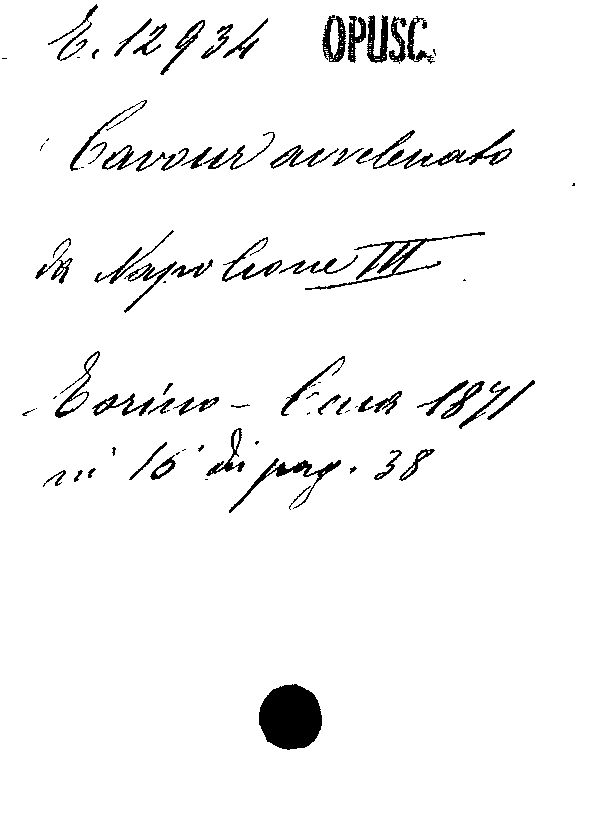 E. 12934 OPUSC.
Cavour avvelenato
da Napoleone III
Torino - Cena 1871
in 16° di pag. 38